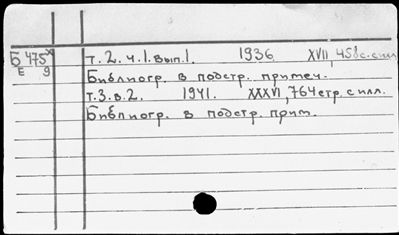 Б 475х т.2. ч.1. вып.1. 1936 XVII, 458с. с илл.
Е 9 Библиогр. в подстр. примеч.
т.3. в.2. 1941. XXXVI, 764стр. с илл.
Библиогр. в подстр. прим.